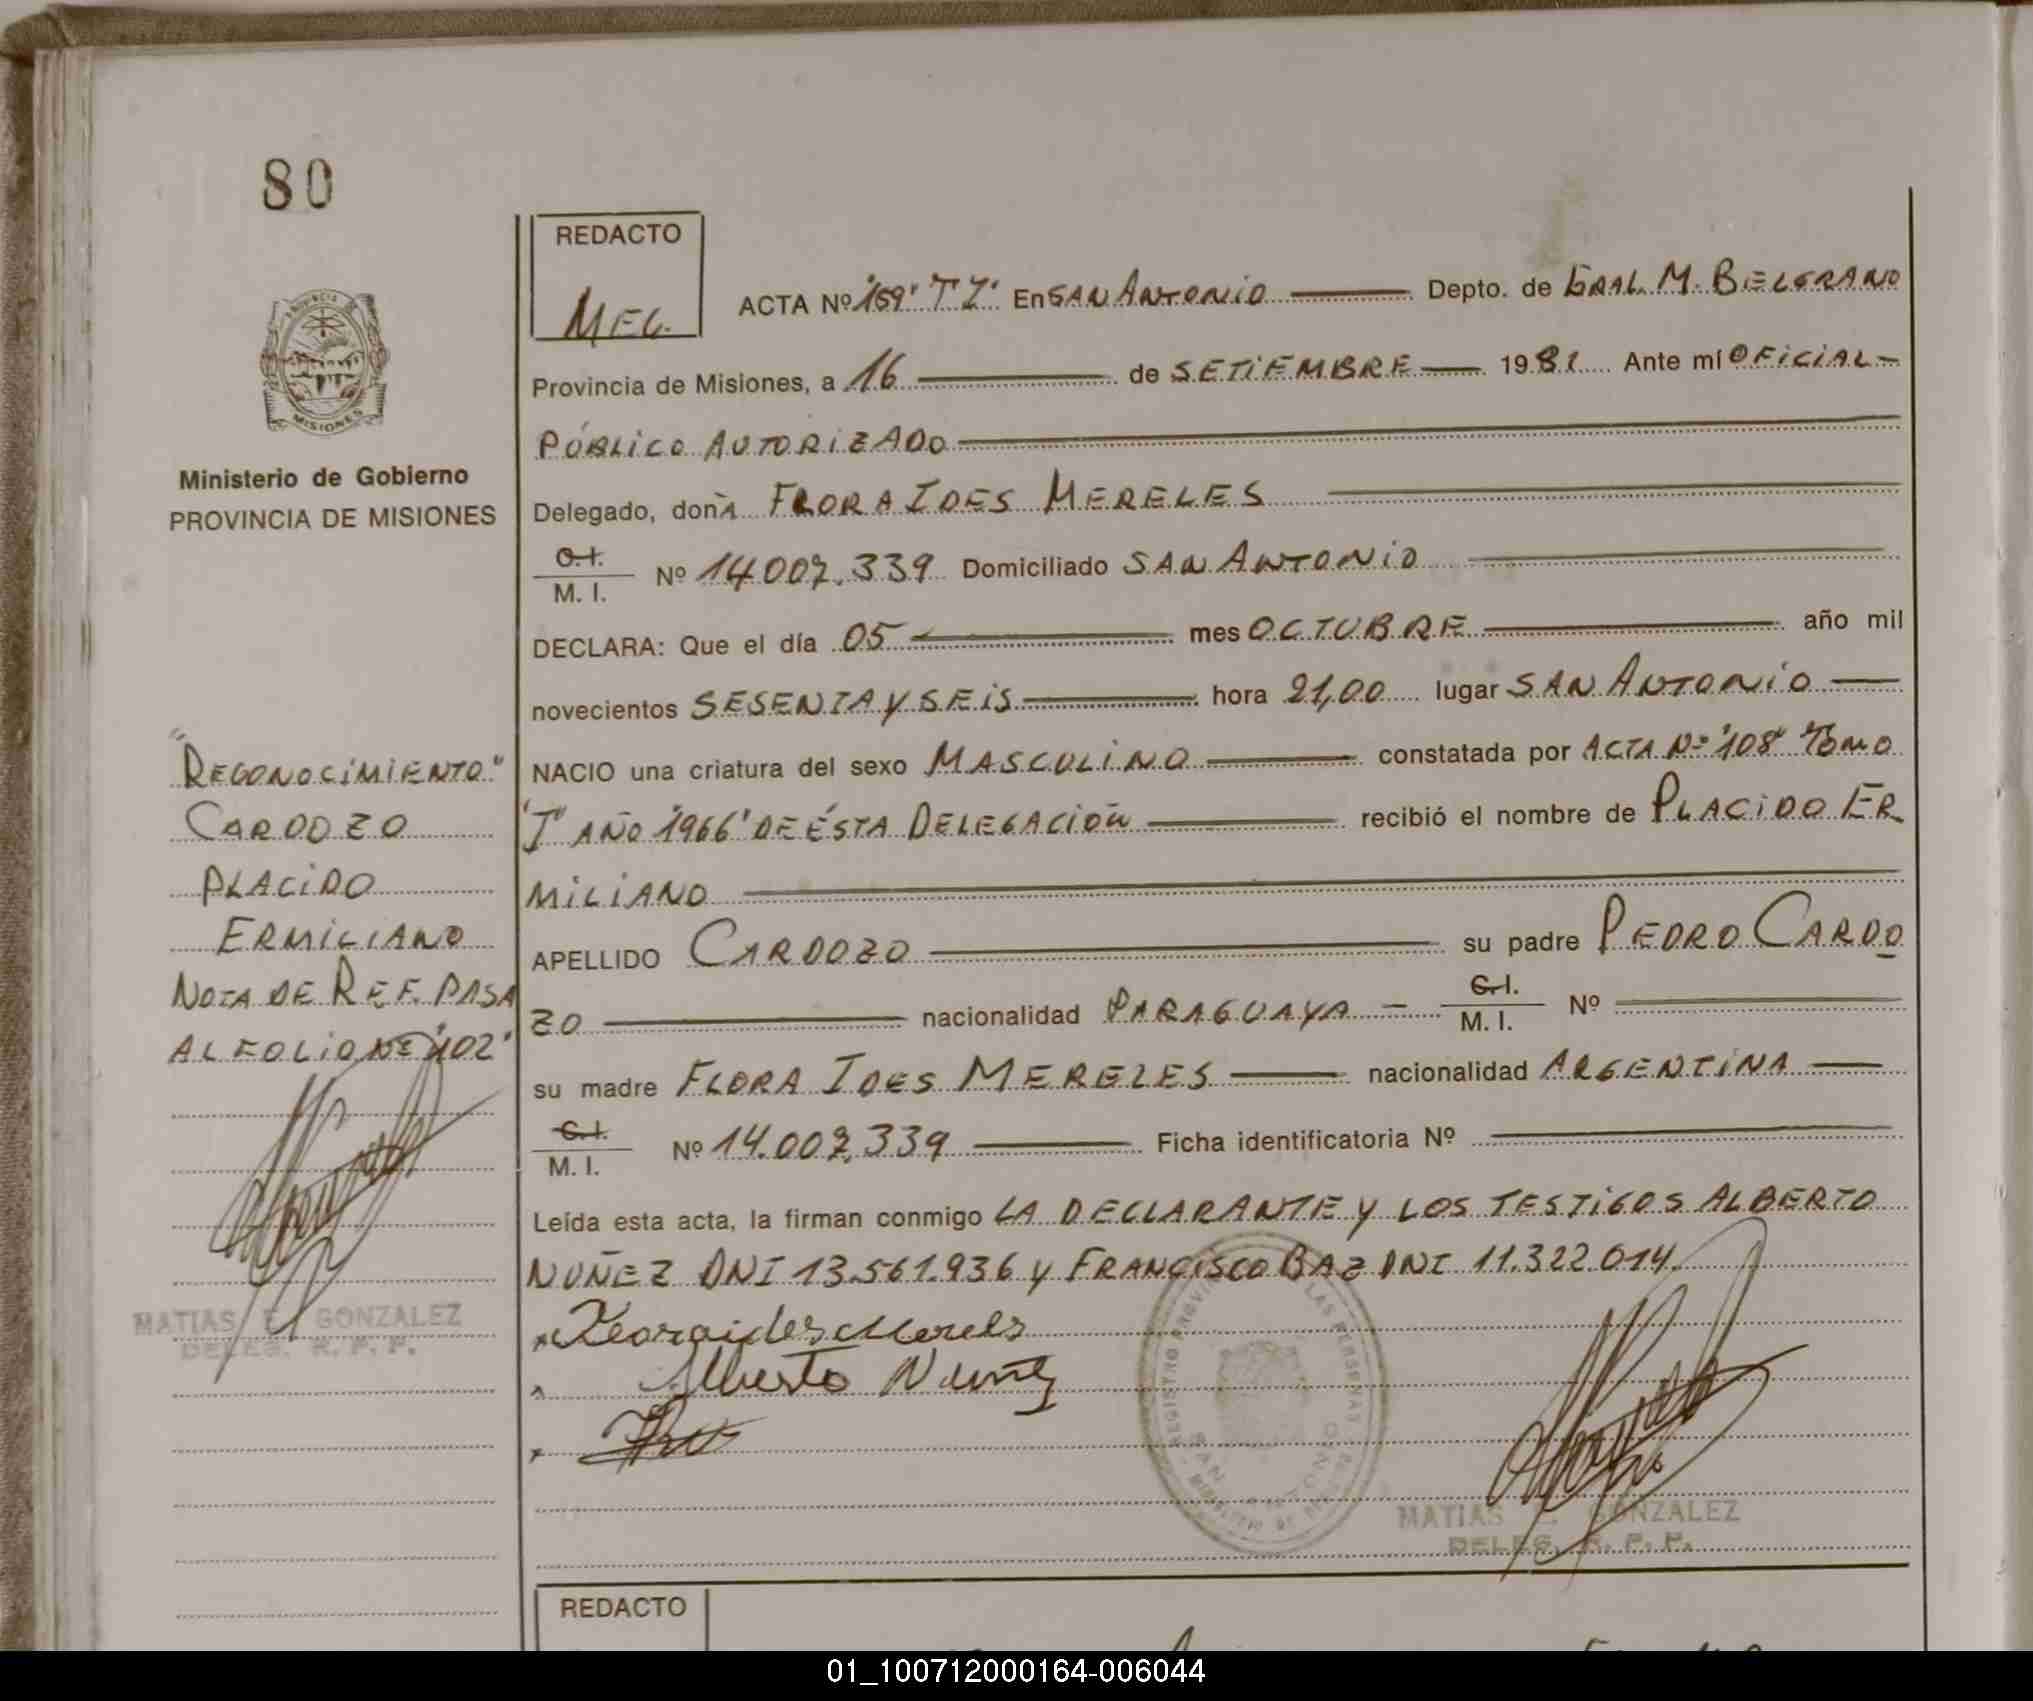 80
PROVINCIA DE
MISIONES
Ministerio de Gobierno
PROVINCIA DE MISIONES
"RECONOCIMIENTO"
CARDOZO
PLACIDO
ERMILIANO
NOTA DE REF. PASA
AL FOLIO Nº "102"
MATIAS E. GONZALEZ
DELEG. R. P. P.
REDACTO
MEG.
ACTA Nº "159" "T I" En SAN ANTONIO Depto. de GRAL. M. BELGRANO
Provincia de Misiones, a 16 de SETIEMBRE 1981 Ante mí OFICIAL
PÚBLICO AUTORIZADO
Delegado, doñA FLORA IDES MERELES
C.I. M. I. Nº 14.007.339 Domiciliado SAN ANTONIO
DECLARA: Que el día 05 mes OCTUBRE año mil
novecientos SESENTA Y SEIS hora 21,00 lugar SAN ANTONIO
NACIO una criatura del sexo MASCULINO constatada por ACTA Nº "108" TOMO
"I" AÑO "1966" DE ÉSTA DELEGACIÓN recibió el nombre de PLACIDO ER
MILIANO
APELLIDO CARDOZO su padre PEDRO CARDO
ZO nacionalidad PARAGUAYA C.I. M. I. Nº
su madre FLORA IDES MERELES nacionalidad ARGENTINA
C.I. M. I. Nº 14.007.339 Ficha identificatoria Nº
Leída esta acta, la firman conmigo LA DECLARANTE Y LOS TESTIGOS ALBERTO
NUÑEZ DNI 13.561.936 y FRANCISCO BAZ DNI 11.322.014.
Alberto Nuñez
REGISTRO PROVINCIAL DE LAS PERSONAS
SAN ANTONIO
MATIAS E. GONZALEZ
DELEG. R. P. P.
REDACTO
01_100712000164-006044